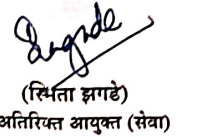 (स्मिता झगडे)
अतिरिक्त आयुक्त (सेवा)